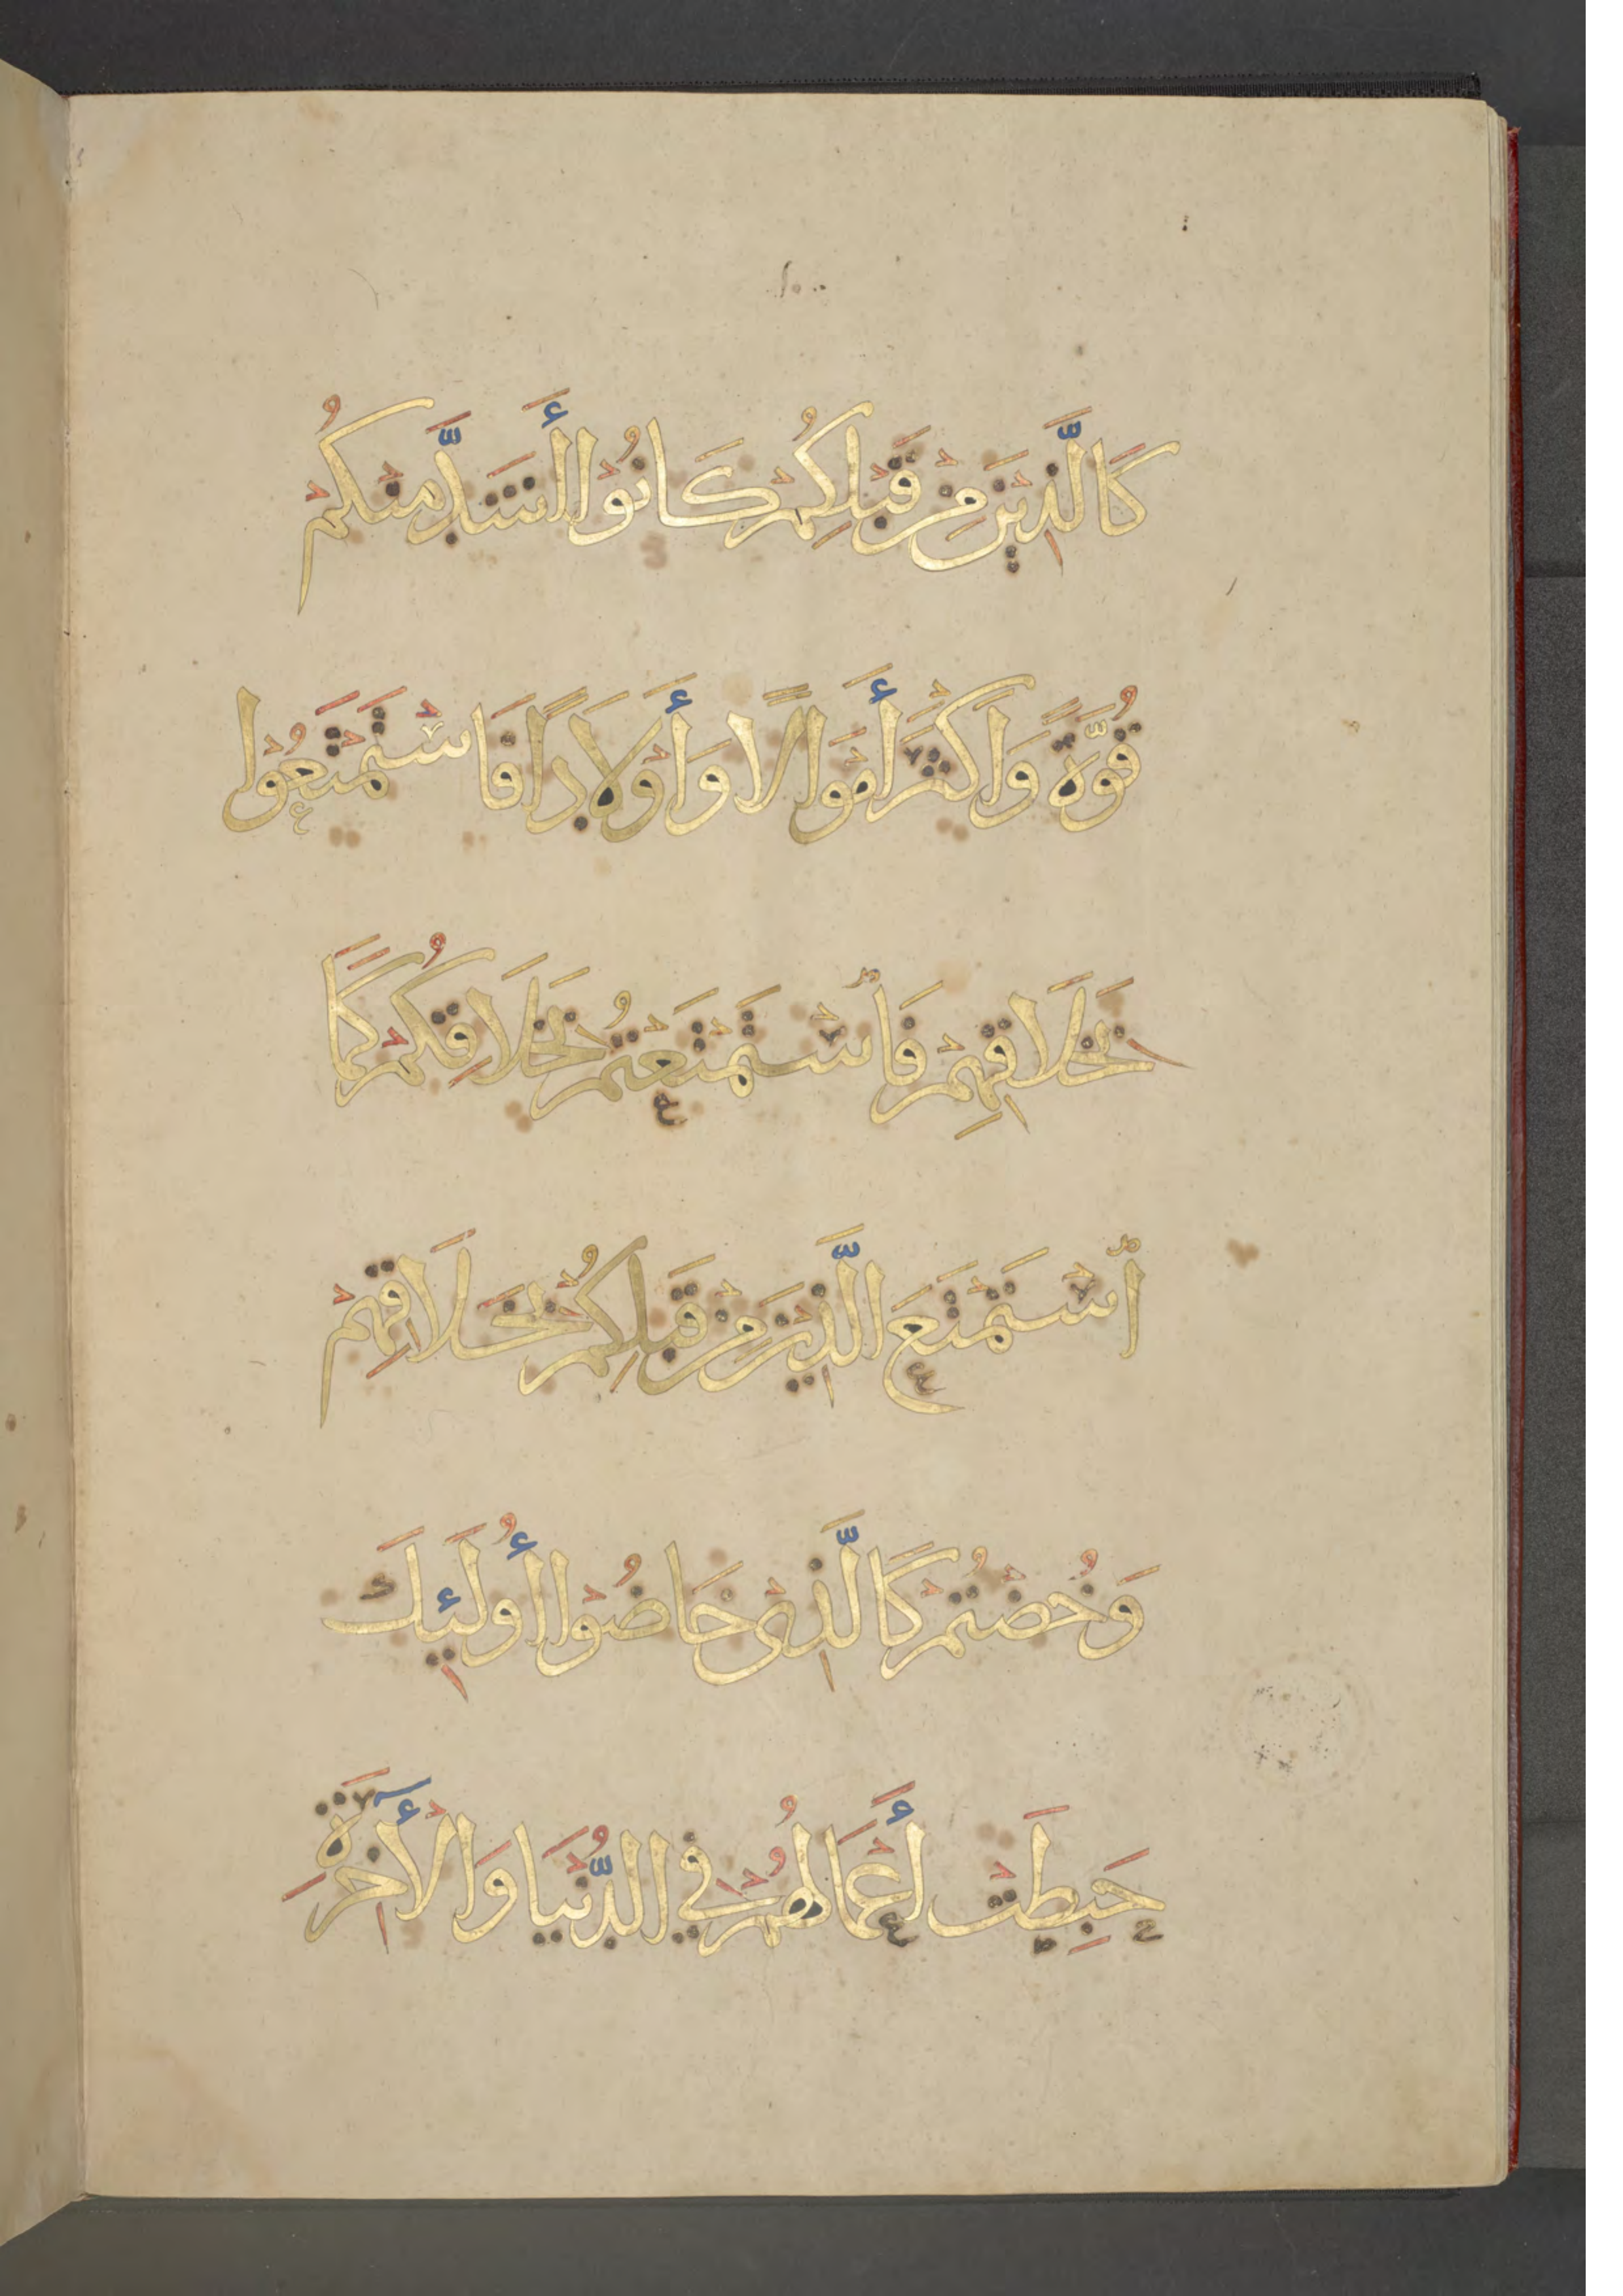 كَالَّذِينَ مِنْ قَبْلِكُمْ كَانُوا أَشَدَّ مِنْكُمْ
قُوَّةً وَاَكْثَرَ أَمْوَالًا وَأَوْلَادًا فَاسْتَمْتَعُوا
بِخَلَاقِهِمْ فَاسْتَمْتَعْتُمْ بِخَلَاقِكُمْ كَمَا
اسْتَمْتَعَ الَّذِينَ مِنْ قَبْلِكُمْ بِخَلَاقِهِمْ
وَخُضْتُمْ كَالَّذِى خَاضُوا أُولَئِكَ
حَبِطَتْ أَعْمَالُهُمْ فِي الدُّنْيَا وَالْأَخِرَةِ